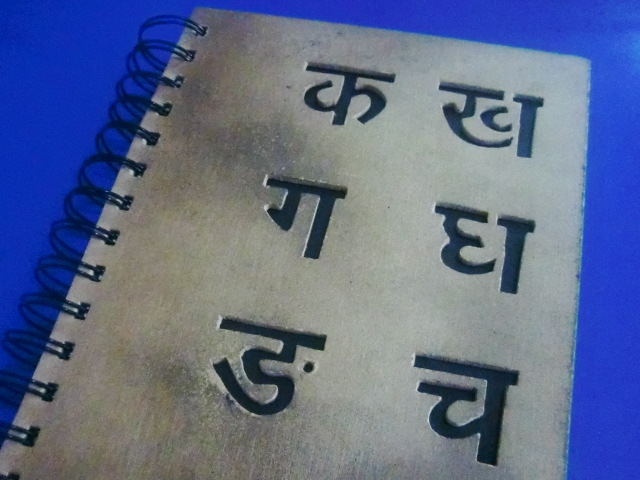 क ख
ग घ
ङ च